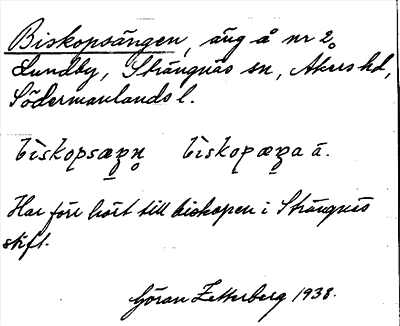 Biskopsängen, äng å nr 2,
Lundby, Strängnäs sn, Åkers hd,
Södermanlands l.
bìskopsæŋn̥ bìskopæŋa ä.
Har förr hört till biskopen i Strängnäs
stift.
Göran Zetterberg 1938.